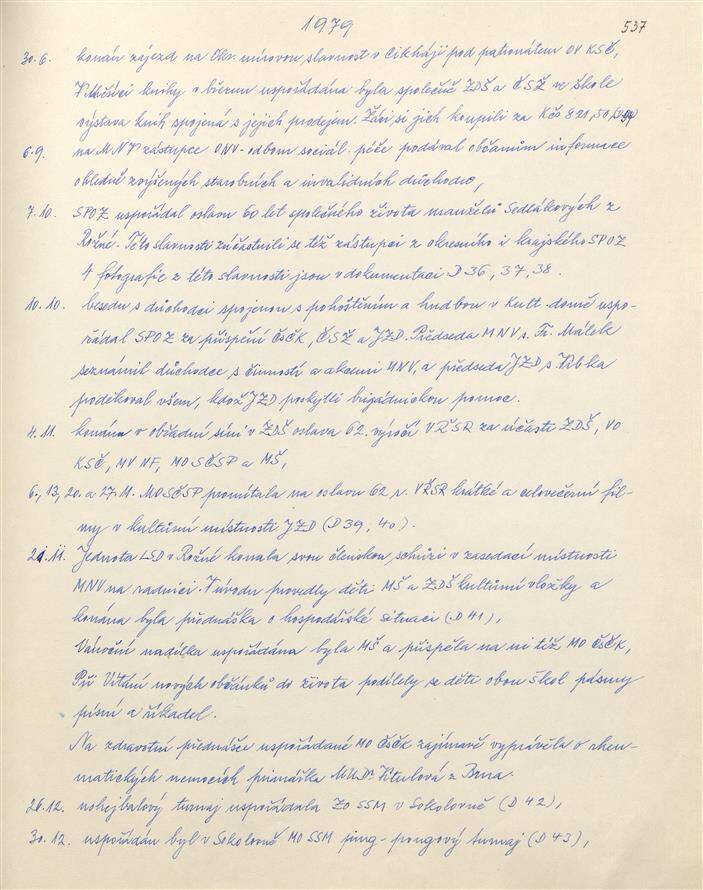 1979
537
30.6. konán zájezd na Okr. mírovou slavnost v Cikháji pod patronátem OV KSČ,
V Měsíci knihy v březnu uspořádána byla společně ZDŠ a ČSŽ ve škole
výstava knih spojená s jejich prodejem. Žáci si jich koupili za Kčs 821,50,
6.9. na MNV zástupce ONV-odboru sociál. péče podával občanům informace
ohledně zvýšených starobních a invalidních důchodů,
7.10. SPOZ uspořádal oslavu 60 let společného života manželů Sedlákových z
Rožné. Této slavnosti zúčastnili se též zástupci z okresního i krajského SPOZ
4 fotografie z této slavnosti jsou v dokumentaci D 36, 37, 38.
10.10. besedu s důchodci spojenou s pohoštěním a hudbou v Kult. domě uspo-
řádal SPOZ za přispění ČSČK, ČSŽ a JZD. Předseda MNV s. Fr. Málek
seznámil důchodce s činností a akcemi MNV, a předseda JZD s. Vrbka
poděkoval všem, kdož JZD poskytli brigádnickou pomoc.
4.11. konána v obřadní síni v ZDŠ oslava 62. výročí VŘSR za účasti ZDŠ, VO
KSČ, MV NF, MO SČSP a MŠ,
6., 13., 20. a 27.11. MO SČSP promítala na oslavu 62 v. VŘSR krátké a celovečerní fil-
my v kulturní místnosti JZD (D 39, 40).
21.11. Jednota LSD v Rožné konala svou členskou schůzi v zasedací místnosti
MNV na radnici. V úvodu provedly děti MŠ a ZDŠ kulturní vložky a
konána byla přednáška o hospodářské situaci (D 41),
Vánoční nadílka uspořádána byla MŠ a přispěla na ni též MO ČSČK,
Při Vítání nových občánků do života podílely se děti obou škol pásmy
písní a říkadel.
Na zdravotní přednášce uspořádané MO ČSČK zajímavě vyprávěla o rheu-
matických nemocích primářka MUDr z Brna.
26.12. nohejbalový turnaj uspořádala ZO SSM v Sokolovně (D 42),
30.12. uspořádán byl v Sokolovně MO SSM ping-pongový turnaj (D 43),